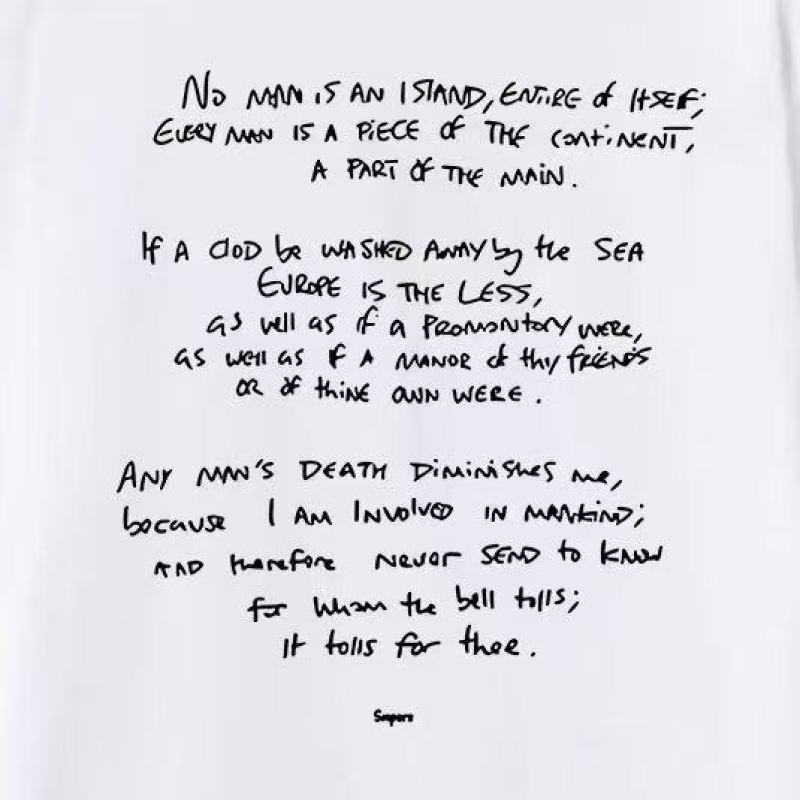 No MAN IS AN ISLAND, ENTIRE of ItSElF;
EVERY MAN IS A PiECE of THE contiNENT,
A PART OF THE MAIN.
If A CLOD be WASHED AWAY by the SEA
EUROPE IS THE LESS,
as well as if a PROMONTORY WERE,
as well as If A MANOR of thy friENDS
OR of thiNE OWN WERE.
ANY MAN'S DEATH DiminiShes me,
because I AM INVOlVED IN MANkiND;
AND therefore never SEND to kNOW
for whom the bell tolls;
It tolls for thee.